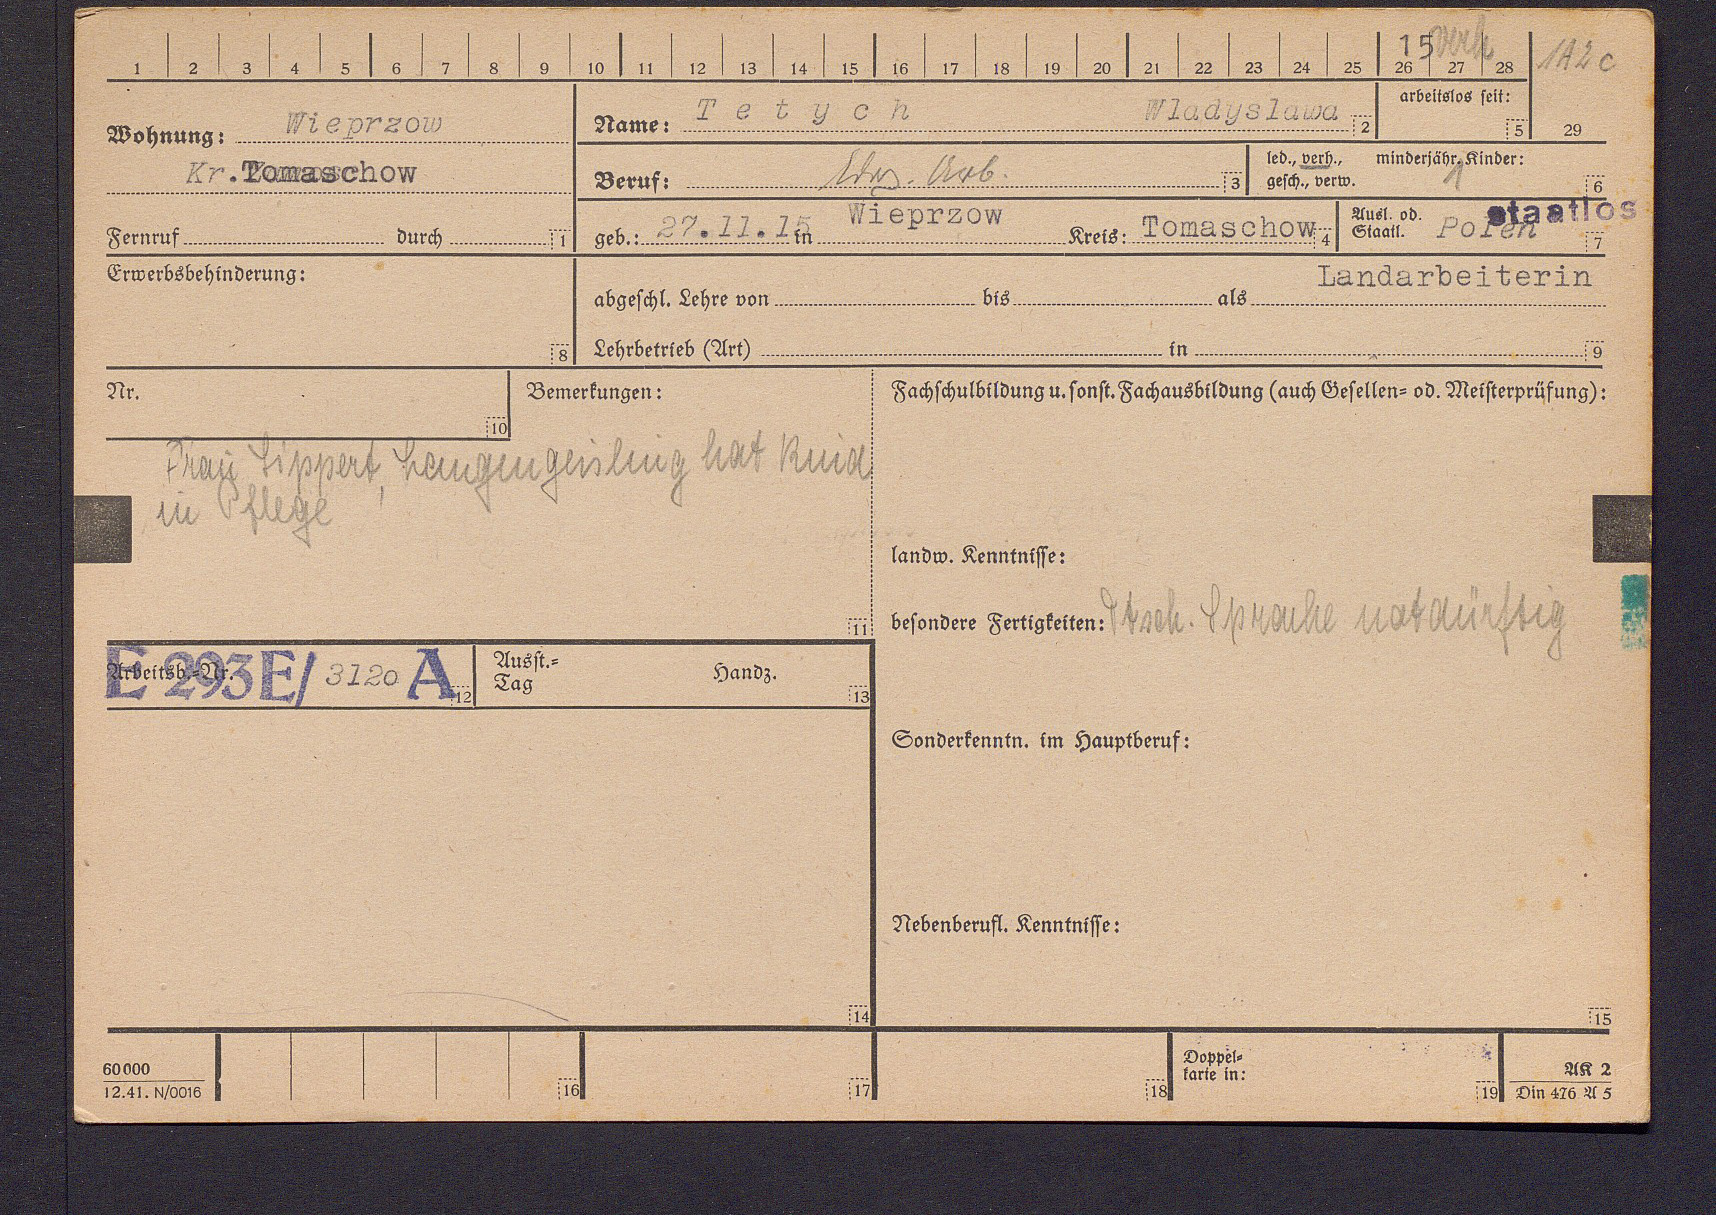 1 2 3 4 5 6 7 8 9 10 11 12 13 14 15 16 17 18 19 20 21 22 23 24 25 26 27 28
15 verh 1A2c
Wohnung: Wieprzow
Kr. Tomaschow
Fernruf durch 1
Name: Tetych Wladyslawa 2
arbeitslos seit: 5
29
Beruf: Ldw. Arb. 3
led., verh., minderjähr. Kinder: 1
gesch., verw. 6
geb.: 27.11.15 in Wieprzow Kreis: Tomaschow 4
Ausl. od. Staatl. Polen staatlos 7
Erwerbsbehinderung: 8
abgeschl. Lehre von bis als Landarbeiterin
Lehrbetrieb (Art) in 9
Nr. 10
Bemerkungen:
Frau Lippert, Langengeisling hat Kind
in Pflege
11
Fachschulbildung u. sonst. Fachausbildung (auch Gesellen- od. Meisterprüfung):
landw. Kenntnisse:
besondere Fertigkeiten: Dtsch. Sprache notdürftig
Arbeitsb.-Nr. E 293E/ 3120 A 12
Ausst.-Tag Handz. 13
Sonderkenntn. im Hauptberuf:
Nebenberufl. Kenntnisse:
14
15
60000
12.41. N/0016
16
17
18
Doppel-
karte in:
19
AK 2
Din 476 A 5